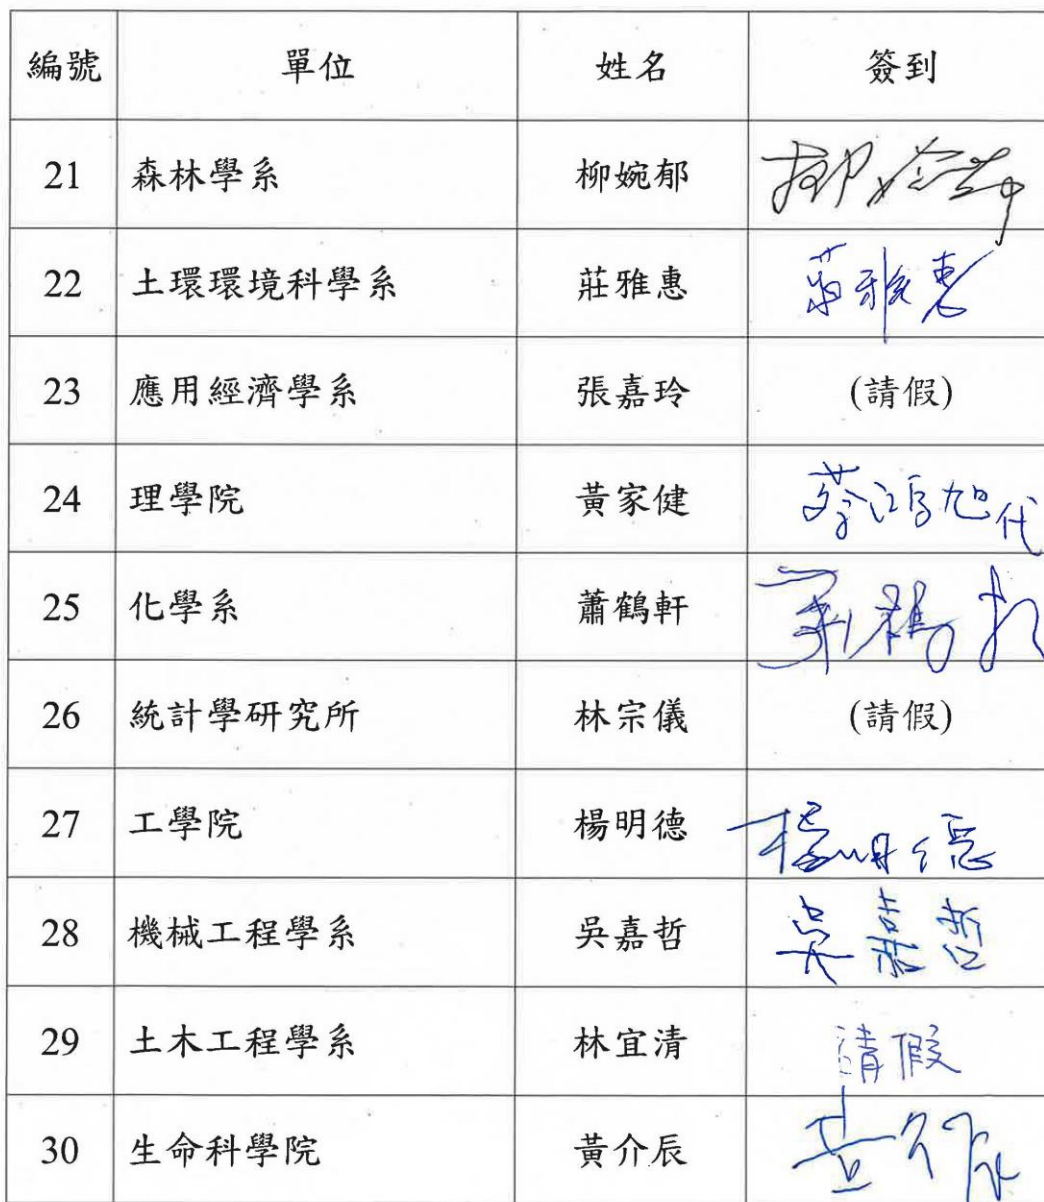 編號 單位 姓名 簽到
21 森林學系 柳婉郁 柳婉郁
22 土環環境科學系 莊雅惠 莊雅惠
23 應用經濟學系 張嘉玲 (請假)
24 理學院 黃家健 蔡鴻旭代
25 化學系 蕭鶴軒 蕭鶴軒
26 統計學研究所 林宗儀 (請假)
27 工學院 楊明德 楊明德
28 機械工程學系 吳嘉哲 吳嘉哲
29 土木工程學系 林宜清 請假
30 生命科學院 黃介辰 黃介辰